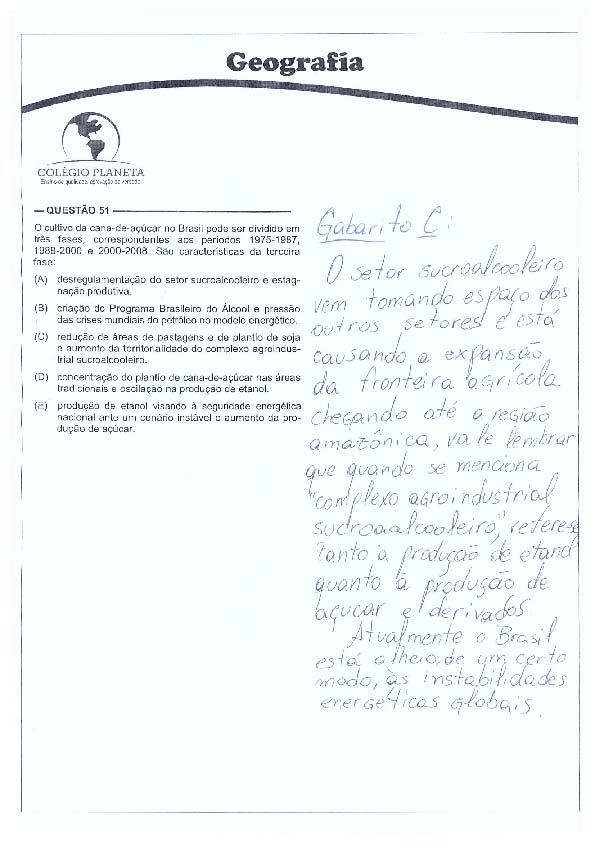 Geografia
COLÉGIO PLANETA
Ensino de qualidade, aprovação de verdade.
— QUESTÃO 51
O cultivo da cana-de-açúcar no Brasil pode ser dividido em
três fases, correspondentes aos períodos 1975-1987,
1988-2000 e 2000-2008. São características da terceira
fase:
(A) desregulamentação do setor sucroalcooleiro e estag-
nação produtiva.
(B) criação do Programa Brasileiro do Álcool e pressão
das crises mundiais do petróleo no modelo energético.
(C) redução de áreas de pastagens e de plantio de soja
e aumento da territorialidade do complexo agroindus-
trial sucroalcooleiro.
(D) concentração do plantio de cana-de-açúcar nas áreas
tradicionais e oscilação na produção de etanol.
(E) produção de etanol visando à seguridade energética
nacional ante um cenário instável e aumento da pro-
dução de açúcar.
Gabarito C:
O setor sucroalcooleiro
vem tomando espaço dos
outros setores e está
causando a expansão
da fronteira agrícola
chegando até a região
amazônica, vale lembrar
que quando se menciona
"complexo agroindustrial
sucroaalcooleiro", refere-se
tanto à produção de etanol
quanto à produção de
açucar e derivados.
Atualmente o Brasil
está alheio, de um certo
modo, às instabilidades
energéticas globais.